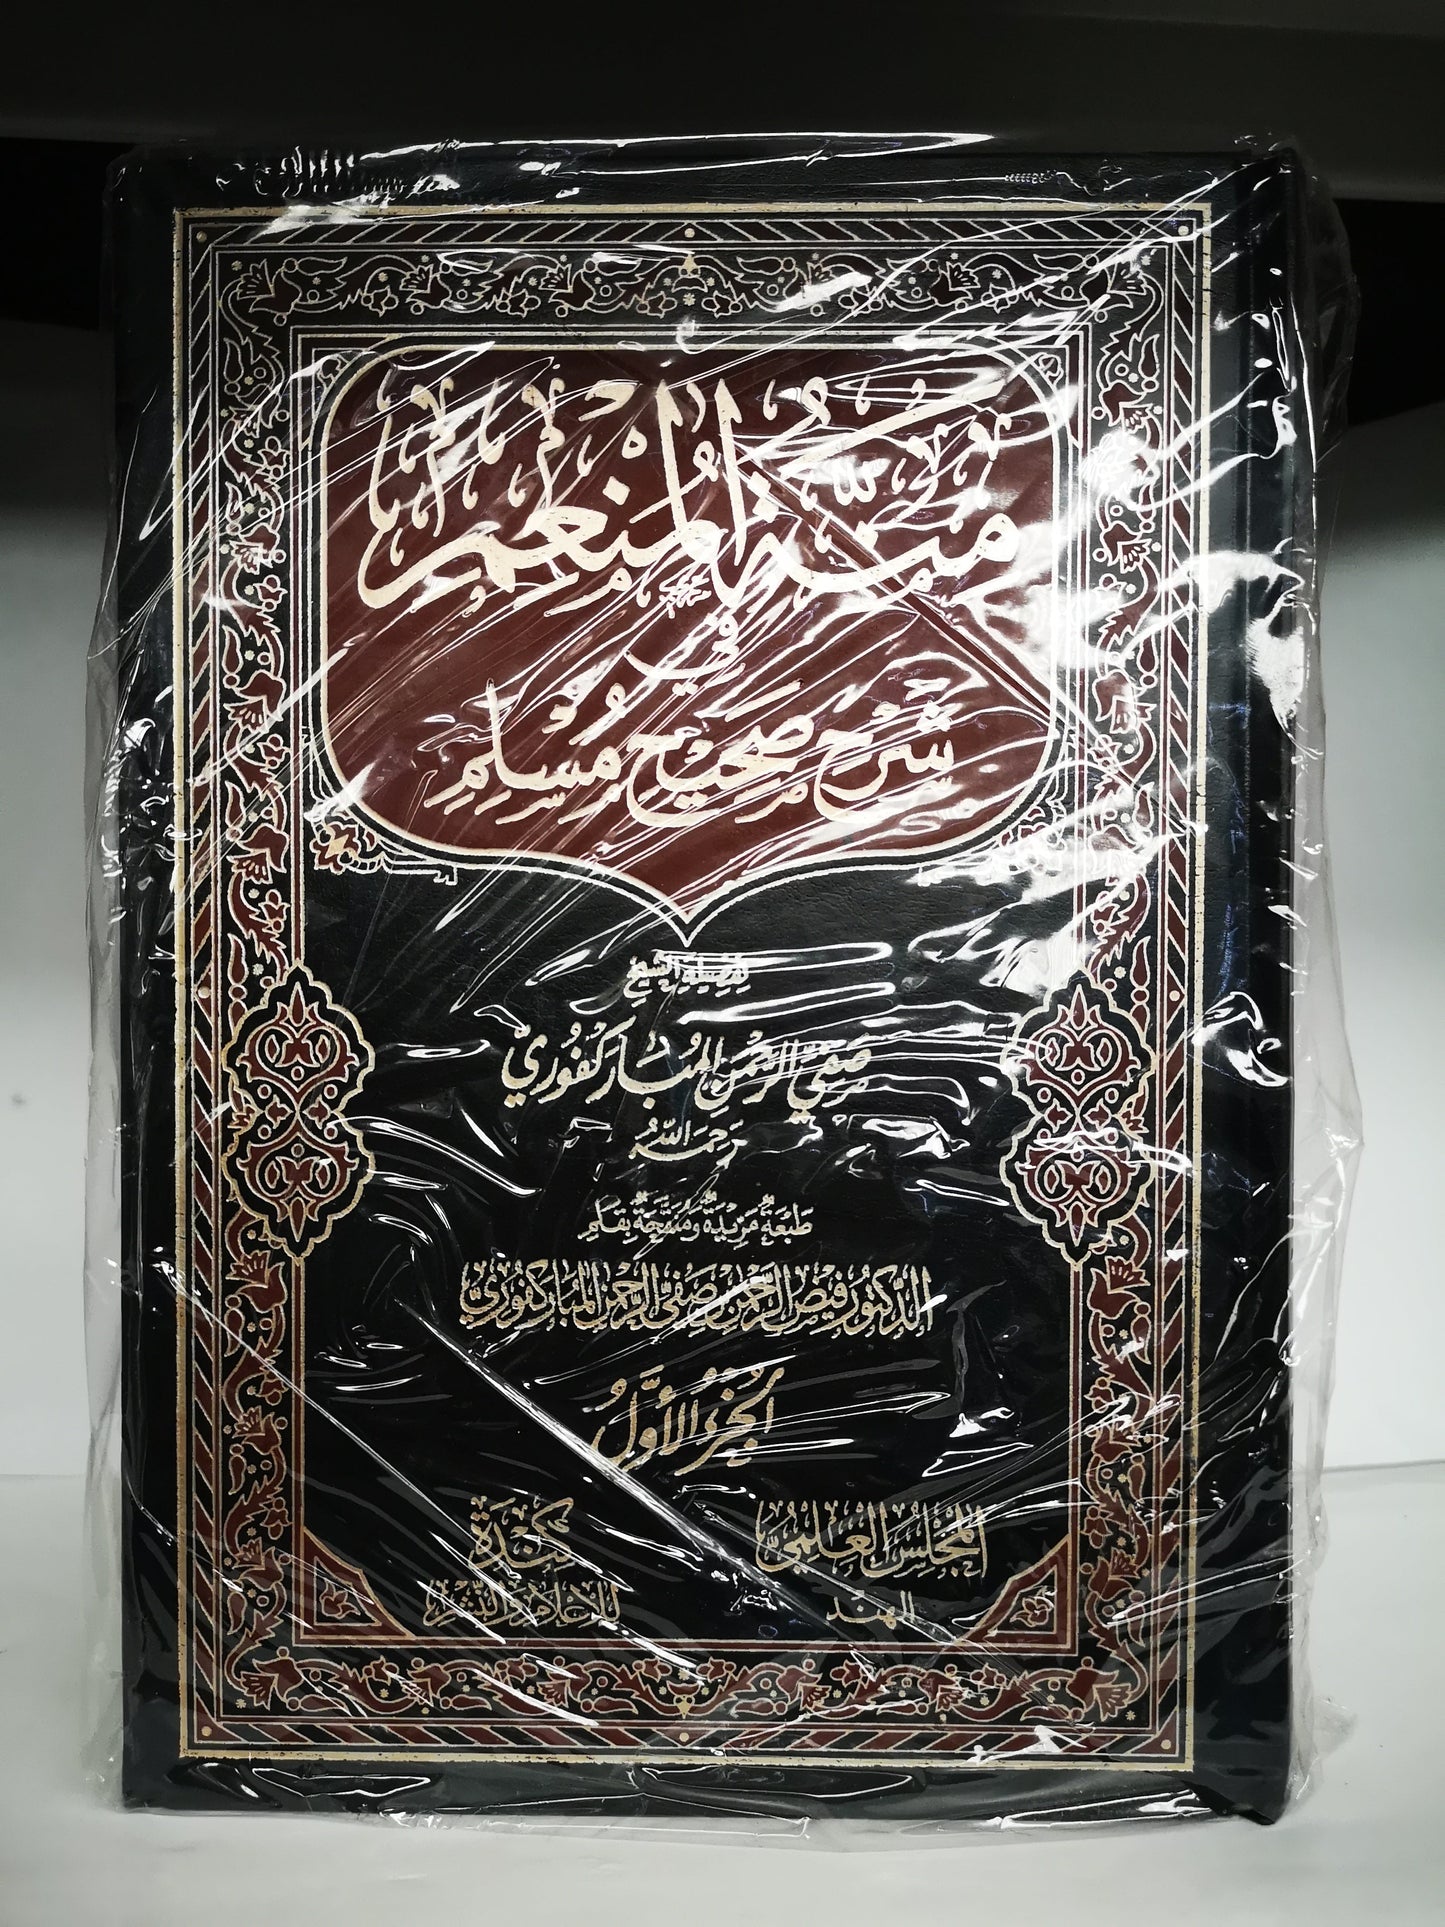 مِنَّةُ المُنْعِمِ
في
شَرْحِ صَحِيْحِ مُسْلِمٍ
لفضيلة الشيخ
صَفِيِّ الرَّحْمٰنِ المُبَارَكْفُوْرِيِّ
رَحِمَهُ اللّٰهُ
طَبْعَةٌ مَزِيْدَةٌ وَمُنَقَّحَةٌ بِقَلَمِ
الدَّكتُور فَيْضِ الرَّحْمٰنِ بن صَفِيِّ الرَّحْمٰنِ المُبَارَكفُوْرِيِّ
الجُزْءُ الأَوَّلُ
المَجْلِسُ العِلْمِيُّ
الهِنْد
كِنْدَة
للإعلام والنَّشْر